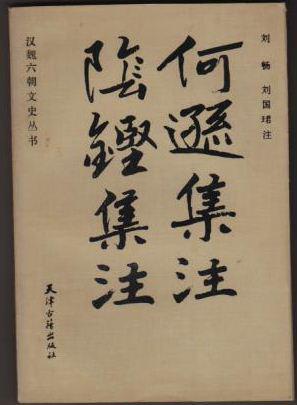 刘畅 刘国珺注
何遜集注
陰鏗集注
汉魏六朝文史丛书
天津古籍出版社